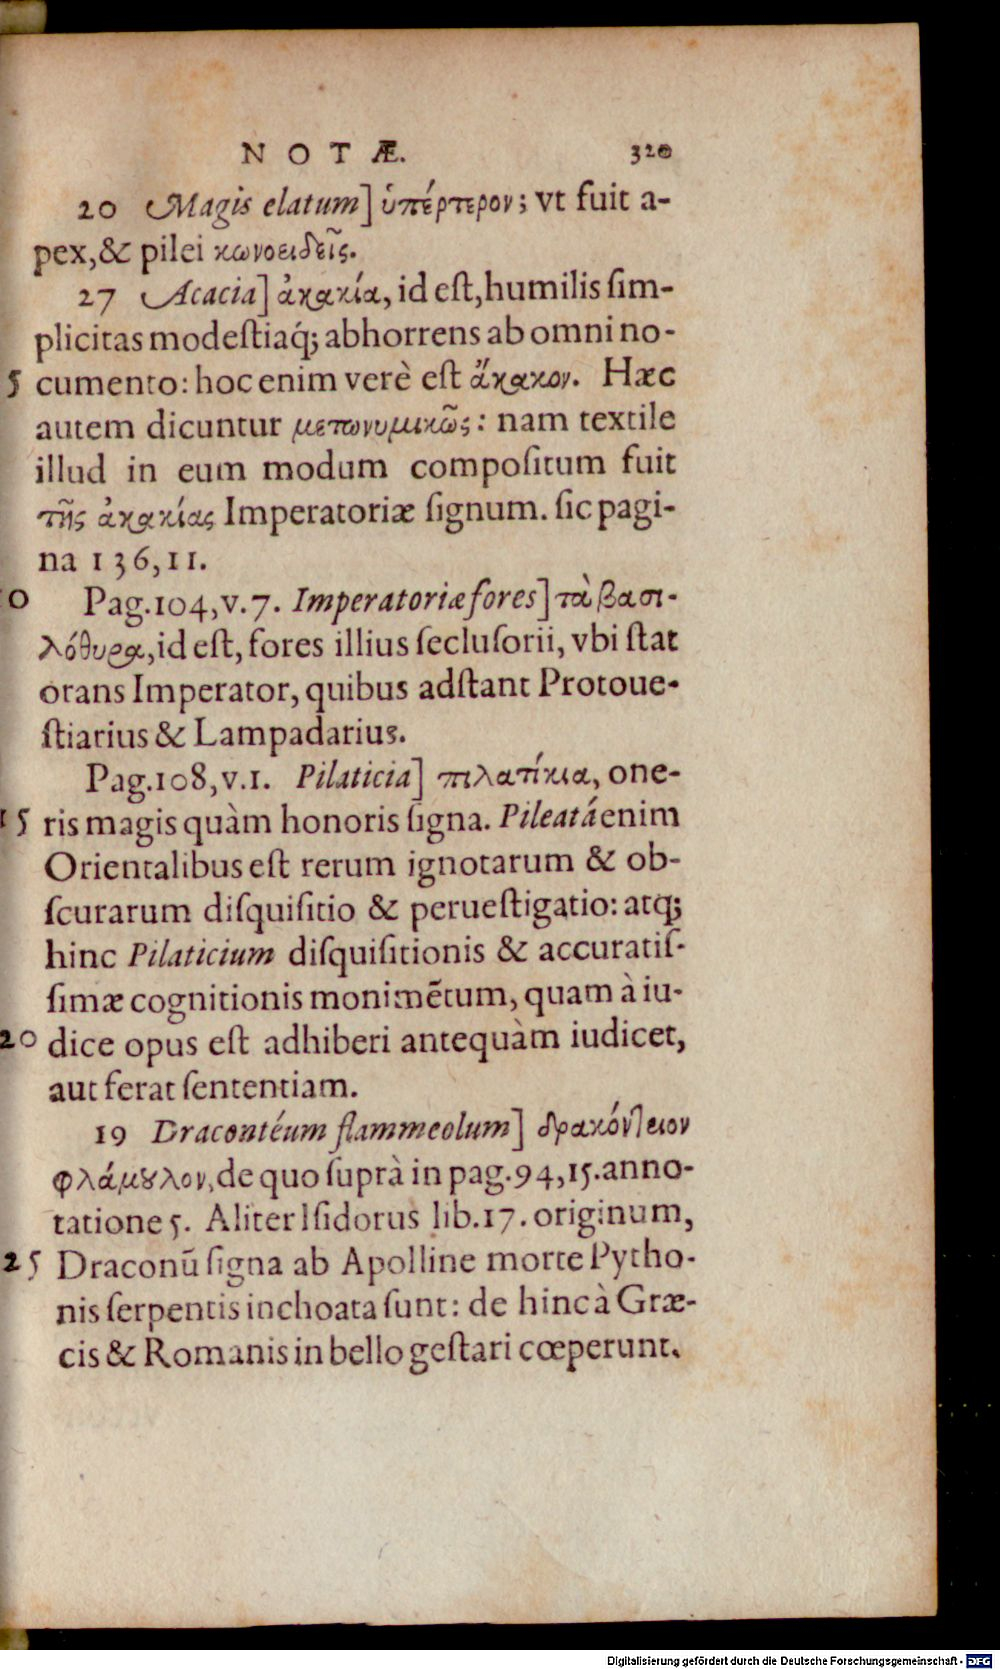 NOTÆ. 320
20 Magis elatum] ὑπέρτερον; vt fuit a-
pex, & pilei κωνοειδεῖς.
27 Acacia] ἀκακία, id eſt, humilis ſim-
plicitas modeſtiaq́; abhorrens ab omni no-
5 cumento: hoc enim verè eſt ἄκακον. Hæc
autem dicuntur μετωνυμικῶς: nam textile
illud in eum modum compoſitum fuit
τῆς ἀκακίας Imperatoriæ ſignum. ſic pagi-
na 136,11.
0 Pag.104,v.7. Imperatoriæ fores] τὰ βασι-
λόθυρα, id eſt, fores illius ſecluſorii, vbi ſtat
orans Imperator, quibus adſtant Protoue-
ſtiarius & Lampadarius.
Pag.108,v.1. Pilaticia] πιλατίκια, one-
15 ris magis quàm honoris ſigna. Pileatá enim
Orientalibus eſt rerum ignotarum & ob-
ſcurarum diſquiſitio & perueſtigatio: atq;
hinc Pilaticium diſquiſitionis & accuratiſ-
ſimæ cognitionis monimẽtum, quam à iu-
20 dice opus eſt adhiberi antequàm iudicet,
aut ferat ſententiam.
19 Draconteum flammeolum] δρακόντειον
φλάμȣλον, de quo ſuprà in pag.94,15.anno-
tatione 5. Aliter Iſidorus lib.17. originum,
25 Draconũ ſigna ab Apolline morte Pytho-
nis ſerpentis inchoata ſunt: de hinc à Græ-
cis & Romanis in bello geſtari cœperunt.
Digitalisierung gefördert durch die Deutsche Forschungsgemeinschaft - DFG